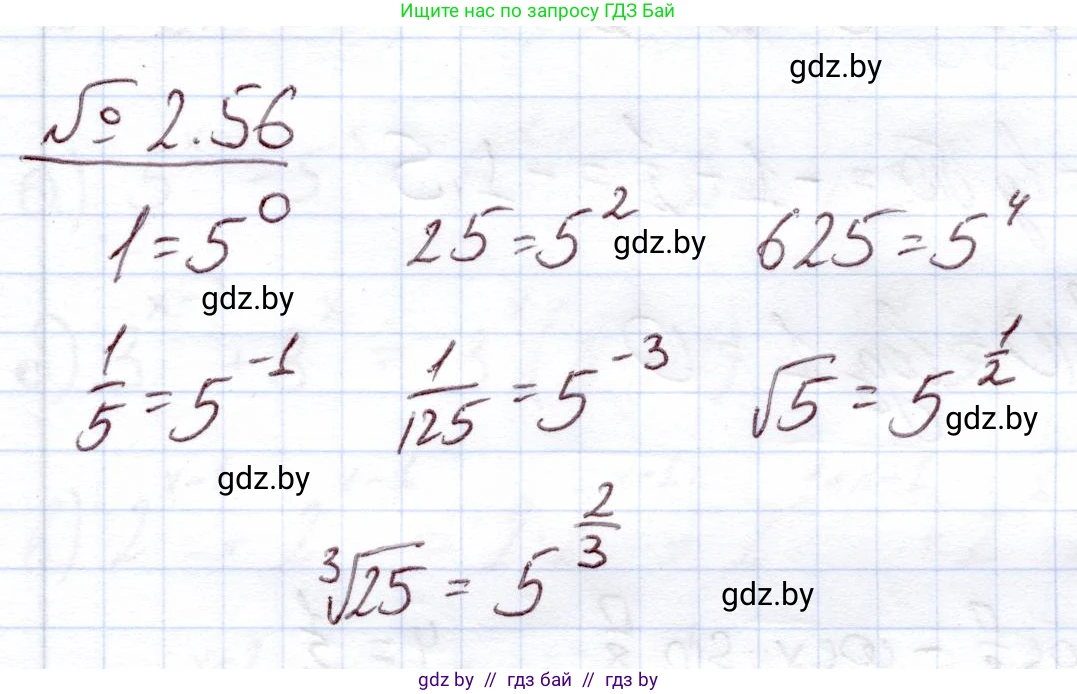 Ищите нас по запросу ГДЗ Бай
gdz.by
№ 2.56
1 = 5^0 25 = 5^2 625 = 5^4
gdz.by
gdz.by
1/5 = 5^-1 1/125 = 5^-3 √5 = 5^1/2
gdz.by
gdz.by
∛25 = 5^2/3
gdz.by
gdz by // гдз бай // gdz by